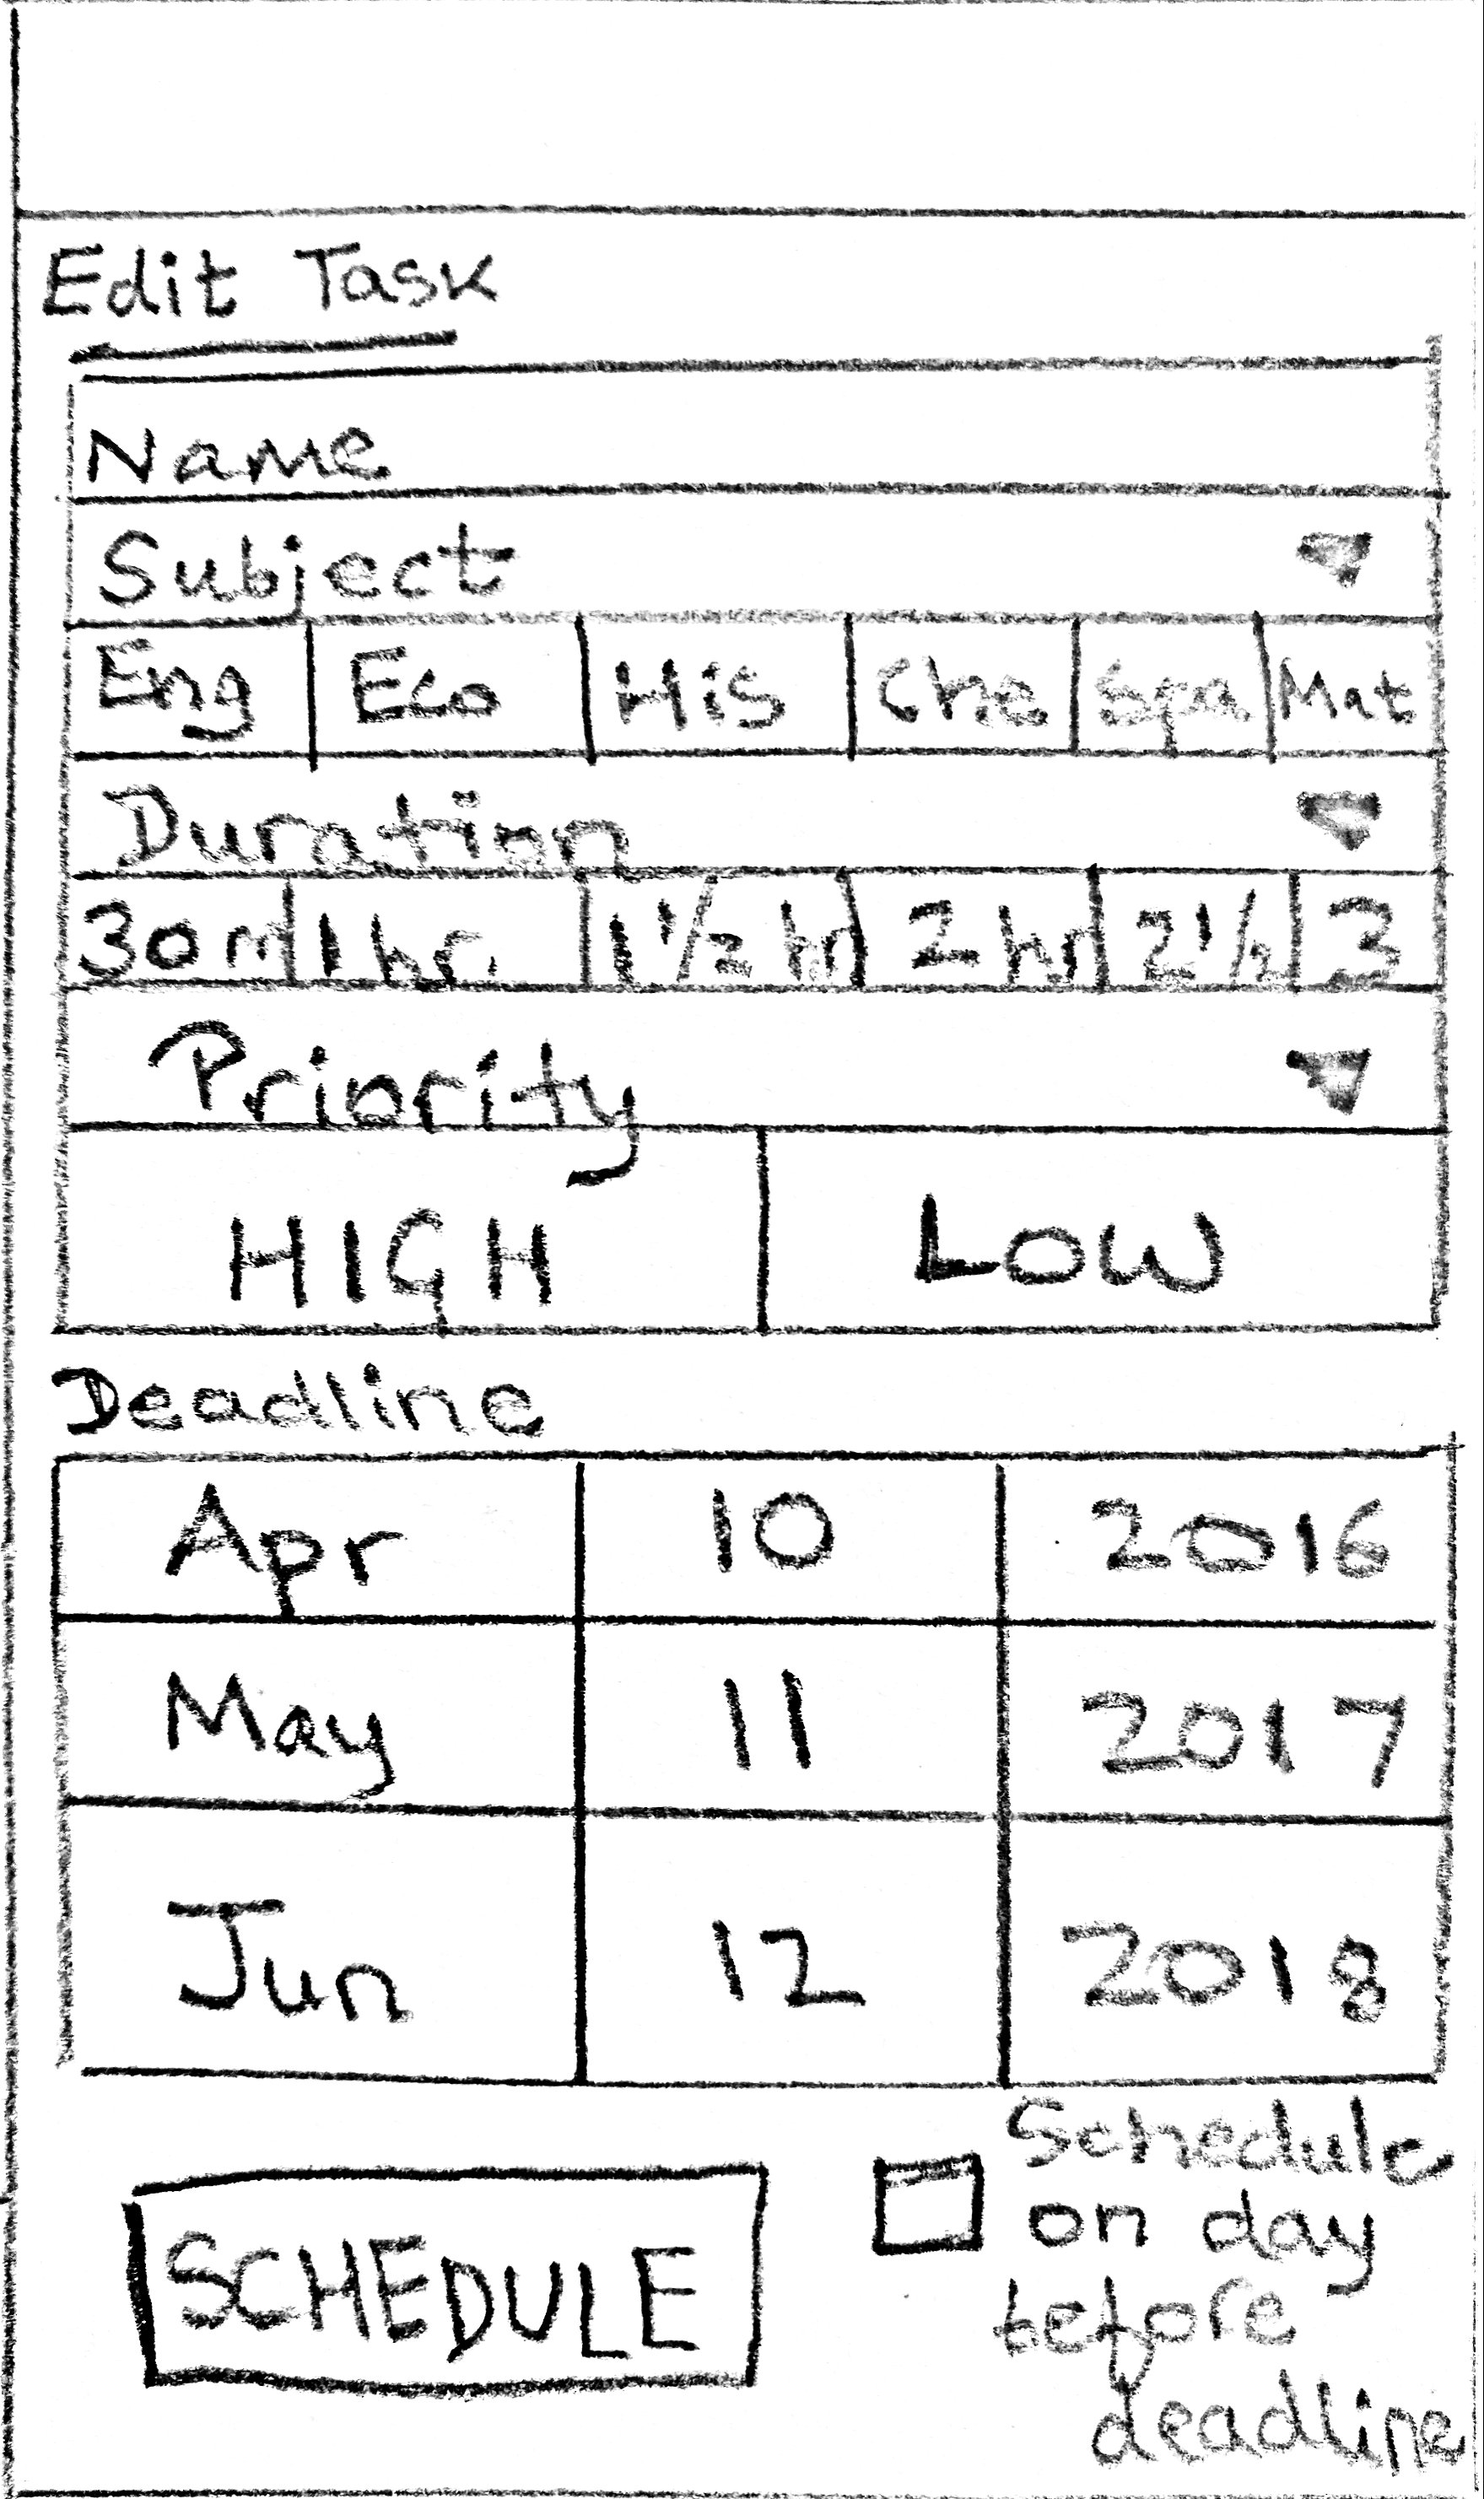 Edit Task
Name
Subject
Eng Eco His Che Spa Mat
Duration
30 m 1 hr. 1 1/2 hr 2 hr 2 1/2 3
Priority
HIGH LOW
Deadline
Apr 10 2016
May 11 2017
Jun 12 2018
SCHEDULE
Schedule
on day
before
deadline